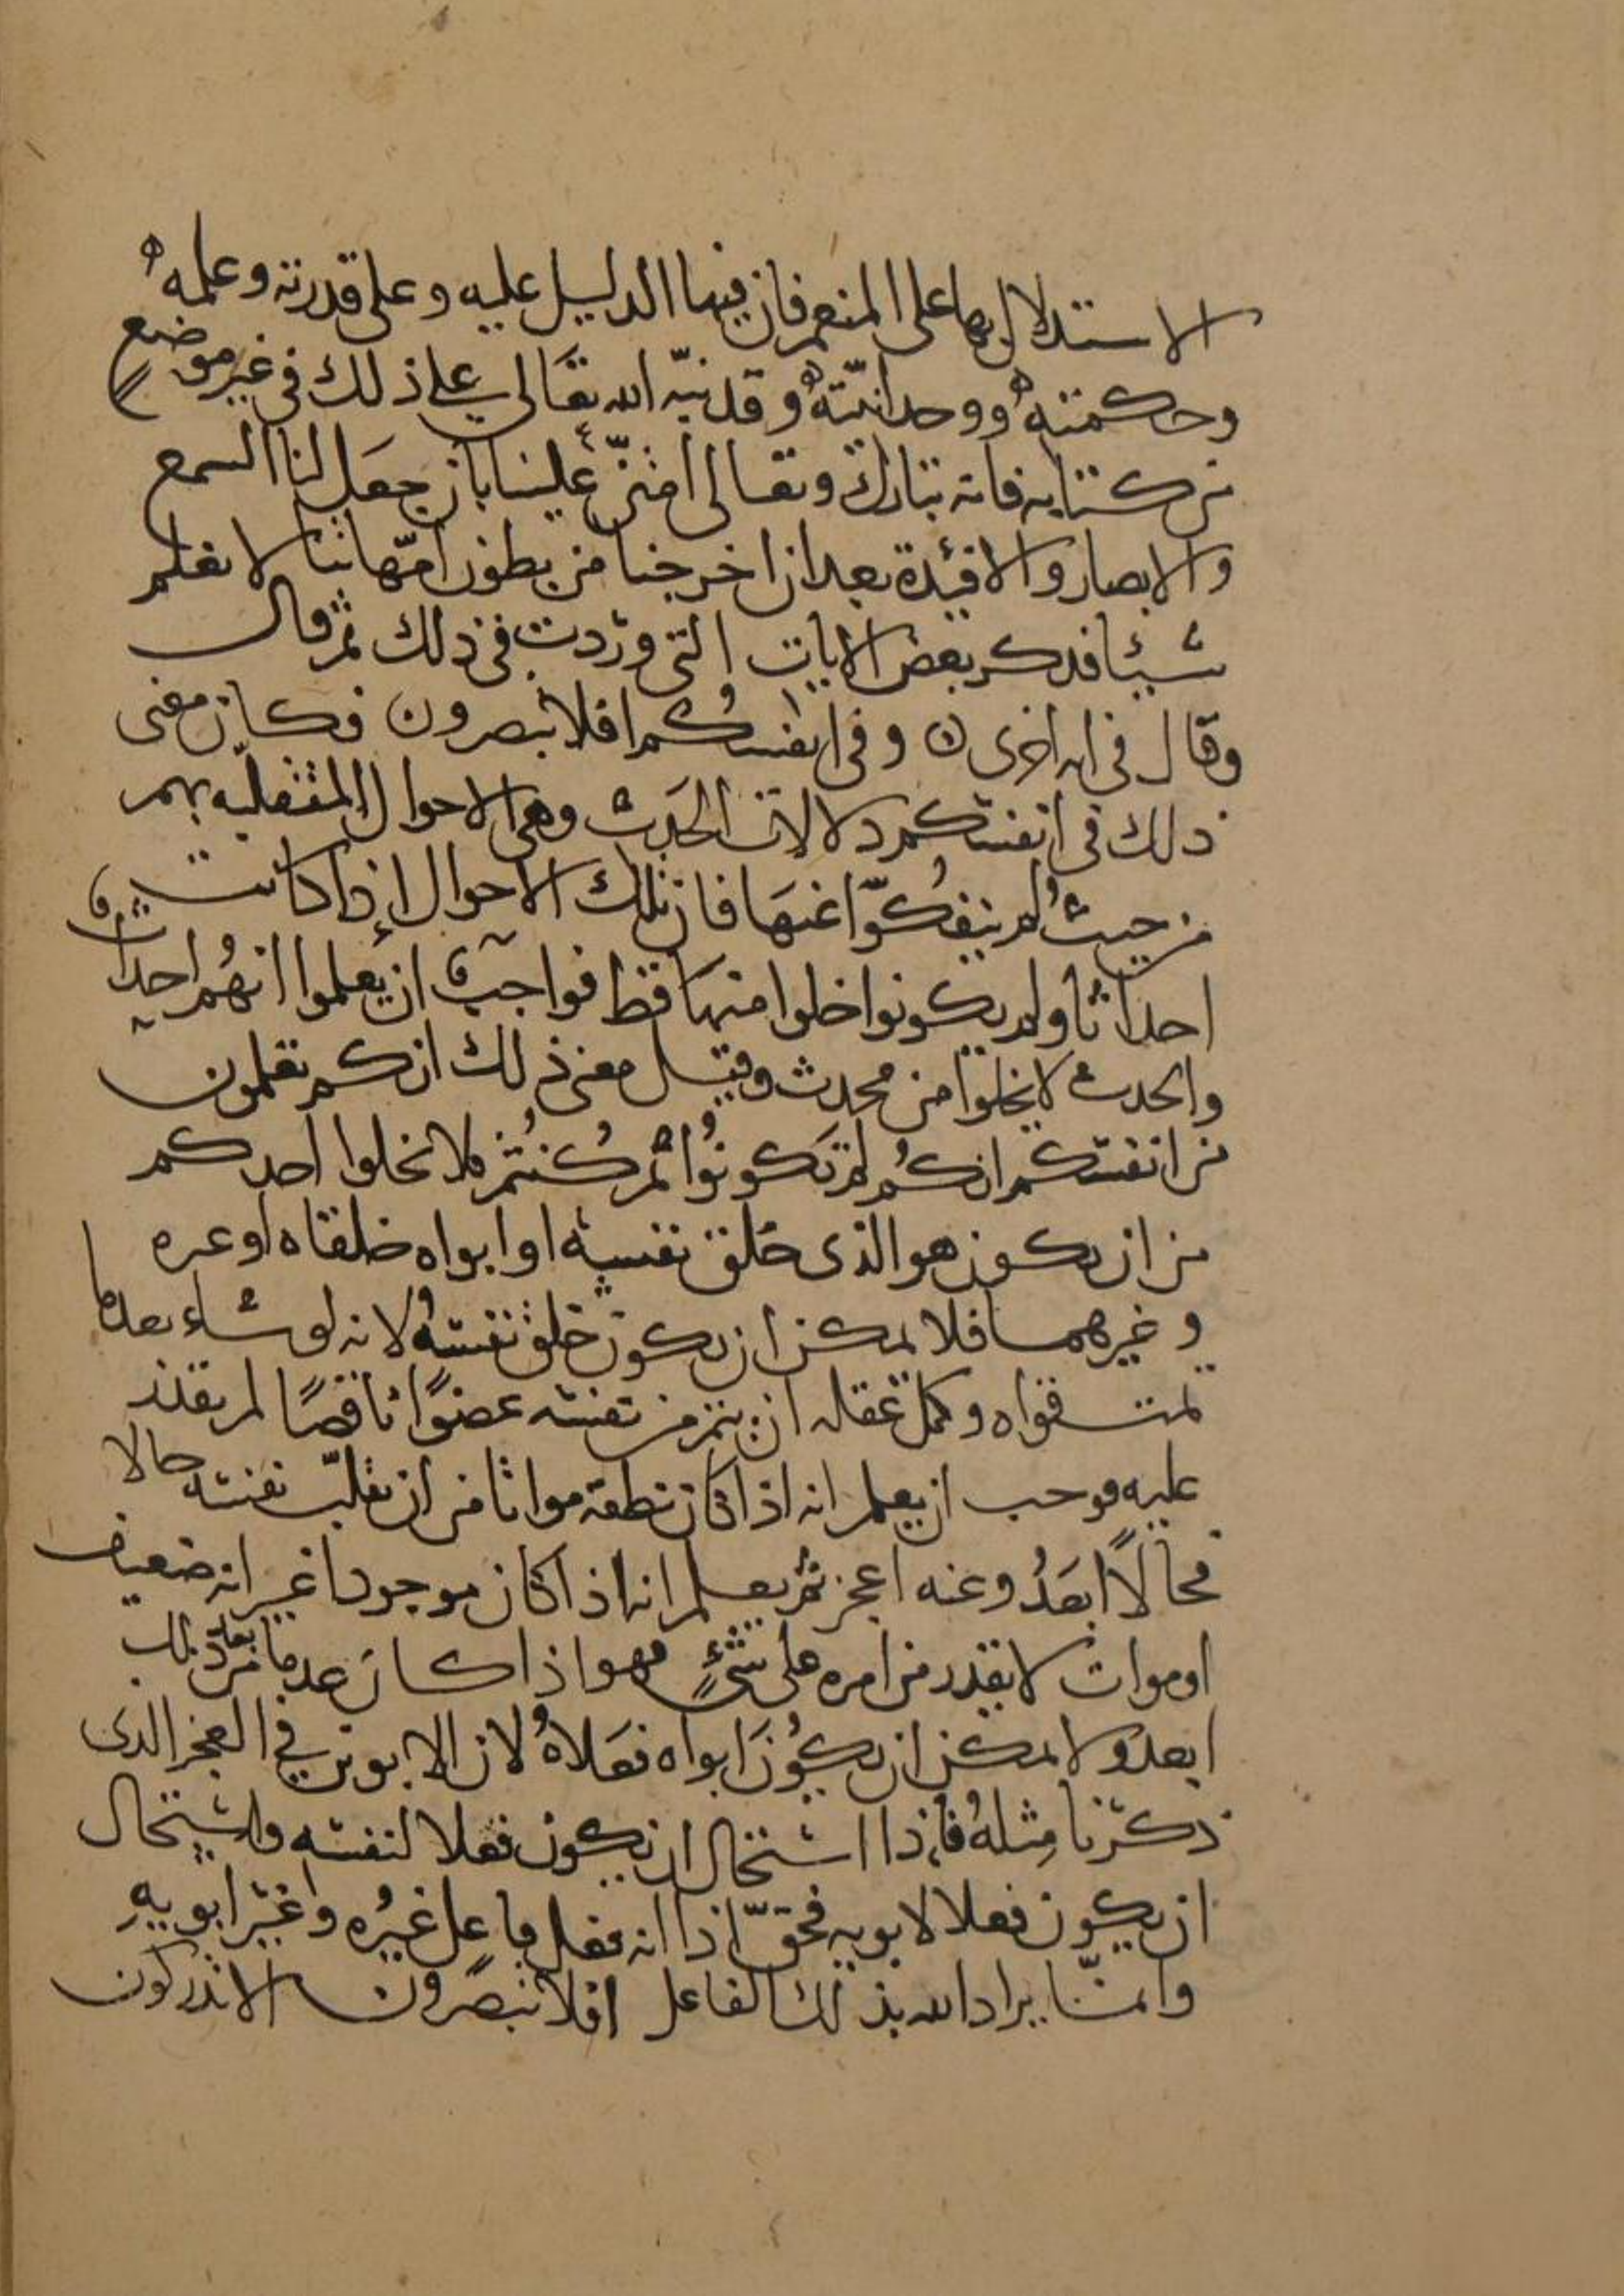 الاستدلال بها على المنعم فان فيها الدليل عليه وعلى قدرته وعلمه
وحكمته ووحدانيته وقد نبّه الله تعالى على ذلك في غير موضع
من كتابه فانه تبارك وتعالى امتنّ علينا بان جعل لنا السمع
والابصار والافئدة بعد ان اخرجنا من بطون امّهاتنا لا نعلم
شيئا فذكر بعض الايات التي وردت في ذلك ثم قال
وقال في ايه اخرى ن وفي انفسكم افلا تبصرون فكان معنى
ذلك في انفسكم دلالات الحدث وهي الاحوال المتقلبه بهم
من حيث لم ينفكوّا عنها فان تلك الاحوال اذا كانت
احداثا ولم يكونوا خلوا منها قط فواجب ان يعلموا انهم احداث
والحدث لا يخلوا من محدث وقيل معنى ذلك انكم تعلمون
من انفسكم انكم لم تكونوا ثم كنتم فلا يخلوا احدكم
من ان يكون هو الذى خلق نفسه او ابواه خلقاه او غيره
وغيرهما فلا يمكن ان يكون خلق نفسه لانه لو شاء بعد ما
تمت قواه وكمل عقله ان يتم من نفسه عضوًا ناقصًا لم يقدر
عليه فوجب ان يعلم انه اذا كان نطفة مواتا من ان يقلّب نفسه حالا
فحالًا ابعدُ وعنه اعجز ثم يعلم انه اذا كان موجودا غير انه ضعيف
او موات لا يقدر من امره على شيءٍ فهو اذا كان عدما من بعد ذلك
ابعد ولا يمكن ان يكون ابواه فعلاهُ لان الابوين في العجز الذى
ذكرنا مثلهُ فاذا استحال ان يكون فعلا لنفسه واستحال
ان يكون فعلا لابويه فحقّ اذا انه فعل فاعل غيره وغير ابويهِ
وانمّا يراد الله بذلك الفاعل افلا تبصرون الا تدركون